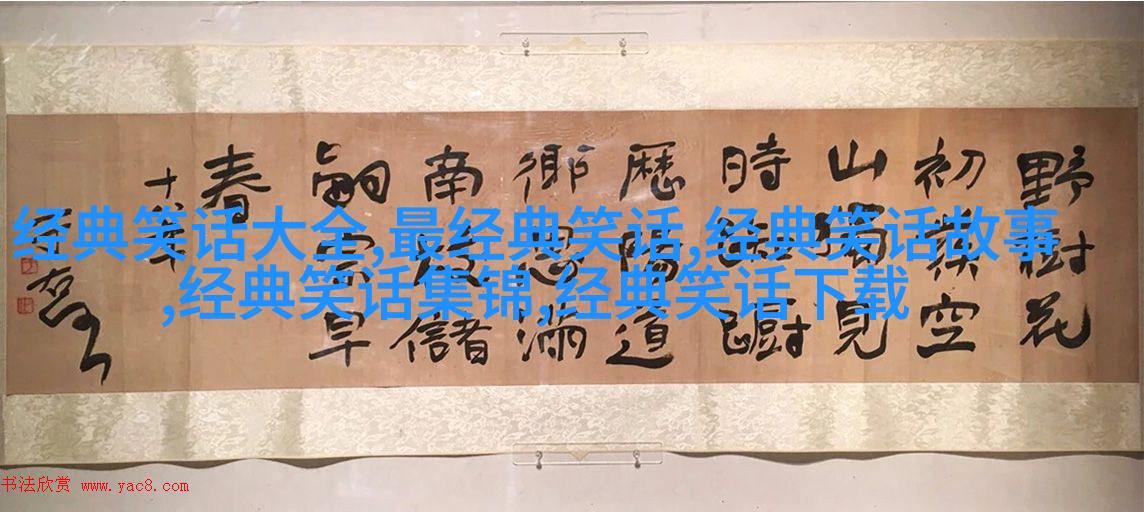 野樹花
初發空
山獨見
時踟躕
歷陽道
鄉思滿
南枝儲
嗣宗早
春
经典笑话大全,最经典笑话,经典笑话故事
,经典笑话集锦,经典笑话下载
书法欣赏 www.yac8.com